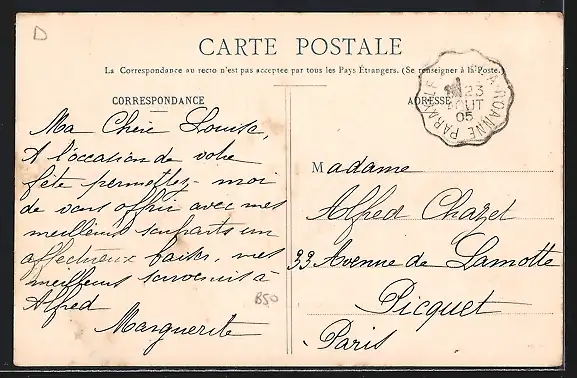 D
CARTE POSTALE
La Correspondance au recto n'est pas acceptée par tous les Pays Étrangers. (Se renseigner à la Poste.)
CORRESPONDANCE
ADRESSE
23
AOUT
05
ROANNE PAR
Ma Chère Louise,
A l'occasion de votre
fête permettez-moi
de vous offrir avec mes
meilleurs souhaits un
affectueux baiser, mes
meilleurs souvenirs à
Alfred
Marguerite
B50
Madame
Alfred Chazel
33 Avenue de Lamotte
Picquet
Paris